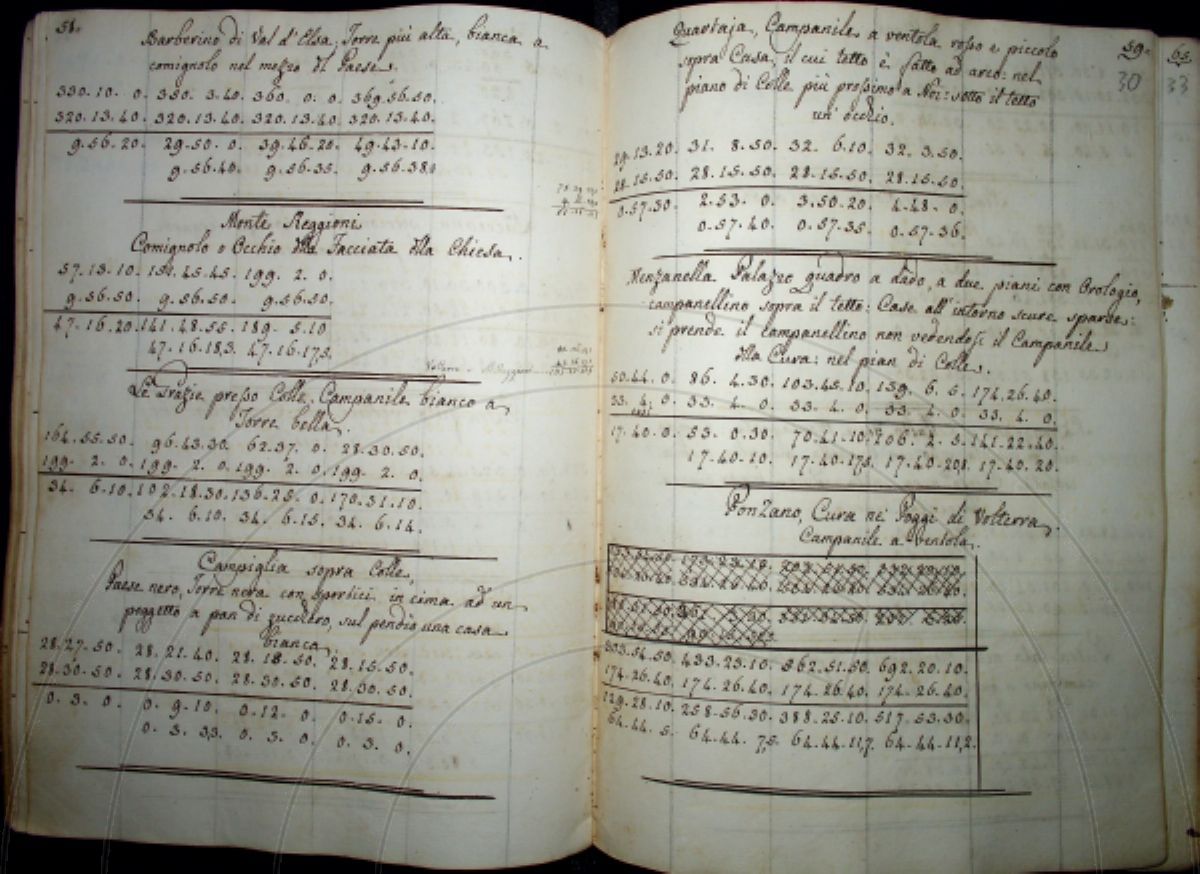 58.
Barberino di Val d'Elsa, Torre più alta, bianca a
comignolo nel mezzo di Paese.
330.10. 0. 350. 3.40. 360. 0. 0. 369.56.50.
320.13.40. 320.13.40. 320.13.40. 320.13.40.
9.56.20. 29.50. 0. 39.46.20. 49.43.10.
9.56.40. 9.56.35. 9.56.38.
Monte Reggioni
Comignolo o Occhio della Facciata della Chiesa.
57.13.10. 151.45.45. 199. 2. 0.
9.56.50. 9.56.50. 9.56.50.
47.16.20. 141.48.55. 189. 5.10
47.16.18,3. 47.16.17,5.
Le Grazie presso Colle, Campanile bianco a
Torre bella.
164.55.50. 96.43.30. 62.37. 0. 28.30.50.
199. 2. 0. 199. 2. 0. 199. 2. 0. 199. 2. 0.
34. 6.10. 102.18.30. 136.25. 0. 170.31.10.
34. 6.10. 34. 6.15. 34. 6.14.
Campiglia sopra Colle,
Paese nero, Torre nera con sportici in cima ad un
poggetto a pan di zucchero, sul pendio una casa
bianca.
28.27.50. 28.21.40. 28.18.50. 28.15.50.
28.30.50. 28.30.50. 28.30.50. 28.30.50.
0. 3. 0. 0. 9.10. 0.12. 0. 0.15. 0.
0. 3. 3,3. 0. 3. 0. 0. 3. 0.
59.
30
Quartaja, Campanile a ventola rosso e piccolo
sopra Casa, il cui tetto è fatto ad arco: nel
piano di Colle più prossimo a Noi: sotto il tetto
un occhio.
29.13.20. 31. 8.50. 32. 6.10. 32. 3.50.
28.15.50. 28.15.50. 28.15.50. 28.15.50.
0.57.30. 2.53. 0. 3.50.20. 4.48. 0.
0.57.40. 0.57.35. 0.57.36.
Menzanella Palazzo quadro a dado, a due piani con Orologio,
campanellino sopra il tetto: Case all'intorno scure sparse:
si prende il campanellino non vedendosi il Campanile
della Cura: nel pian di Colle.
50.44. 0. 86. 4.30. 103.45.10. 139. 6. 5. 174.26.40.
33. 4. 0. 33. 4. 0. 33. 4. 0. 33. 4. 0. 33. 4. 0.
17.40.0. 53. 0.30. 70.41.10. 106. 2. 5. 141.22.40.
17.40.10. 17.40.17,5. 17.40.20,8. 17.40.20.
Ponzano, Cura ne' Poggi di Volterra.
Campanile a Ventola.
303.54.50. 433.23.10. 562.51.50. 692.20.10.
174.26.40. 174.26.40. 174.26.40. 174.26.40.
129.28.10. 258.56.30. 388.25.10. 517.53.30.
64.44. 5. 64.44. 7,5. 64.44.11,7. 64.44.11,2.
65
33